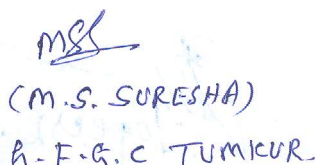 MSS
(M.S. SURESHA)
G.F.G.C TUMKUR